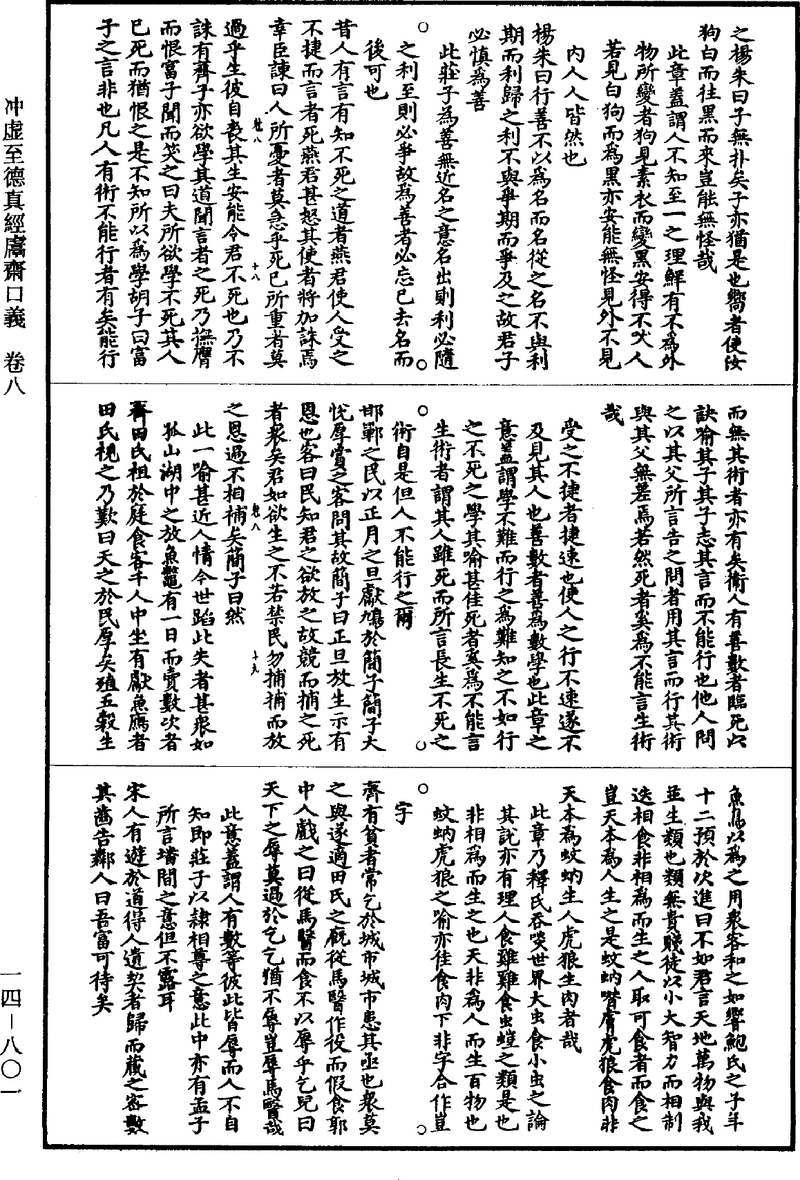 冲虛至德真經鬳齋口義　卷八
之楊朱曰子無扑矣子亦猶是也嚮者使汝
狗白而往黑而來豈能無怪哉
此章蓋謂人不知至一之理鮮有不為外
物所變者狗見素衣而變黑安得不吠人
若見白狗而為黑亦安能無怪見外不見
內人人皆然也
楊朱曰行善不以為名而名從之名不與利
期而利歸之利不與爭期而爭及之故君子
必慎為善
此莊子為善無近名之意名出則利必隨
之利至則必爭故為善者必忘已去名而
後可也
昔人有言有知不死之道者燕君使人受之
不捷而言者死燕君甚怒其使者將加誅焉
幸臣諫曰人所憂者莫急乎死已所重者莫
卷八
十八
過乎生彼自喪其生安能令君不死也乃不
誅有齊子亦欲學其道聞言者之死乃撫膺
而恨富子聞而笑之曰夫所欲學不死其人
已死而猶恨之是不知所以為學胡子曰富
子之言非也凡人有術不能行者有矣能行
而無其術者亦有矣衞人有善數者臨死以
訣喻其子其子志其言而不能行也他人問
之以其父所言告之問者用其言而行其術
與其父無差焉若然死者奚為不能言生術
哉
受之不捷者捷速也使人之行不速遂不
及見其人也善數者善為數學也此章之
意蓋謂學不難而行之為難知之不如行
之不死之學其喻甚佳死者奚為不能言
生術者謂其人雖死而所言長生不死之
術自是但人不能行之爾
邯鄲之民以正月之旦獻鳩於簡子簡子大
悅厚賞之客問其故簡子曰正旦放生示有
恩也客曰民知君之欲放之故競而捕之死
者衆矣君如欲生之不若禁民勿捕捕而放
卷八
十九
之恩過不相補矣簡子曰然
此一喻甚近人情今世蹈此失者甚衆如
孤山湖中之放魚鼈有一日而賣數次者
齊田氏祖於庭食客千人中坐有獻魚鴈者
田氏視之乃歎曰天之於民厚矣殖五穀生
魚鳥以為之用衆客和之如響鮑氏之子年
十二預於次進曰不如君言天地萬物與我
並生類也類無貴賤徒以小大智力而相制
迭相食非相為而生之人取可食者而食之
豈天本為人生之是蚊蚋噆膚虎狼食肉非
天本為蚊蚋生人虎狼生肉者哉
此章乃釋氏吞啖世界大虫食小虫之論
其說亦有理人食雞雞食虫螘之類是也
非相為而生之也天非為人而生百物也
蚊蚋虎狼之喻亦佳食肉下非字合作豈
字
齊有貧者常乞於城市城市患其亟也衆莫
之與遂適田氏之廄從馬醫作役而假食郭
中人戲之曰從馬醫而食不以辱乎乞兒曰
天下之辱莫過於乞乞猶不辱豈辱馬醫哉
此意蓋謂人有數等彼此皆辱而人不自
知即莊子以隸相尊之意此中亦有孟子
所言墦間之意但不露耳
宋人有遊於道得人遺契者歸而藏之密數
其齒告鄰人曰吾富可待矣
一四—八〇一